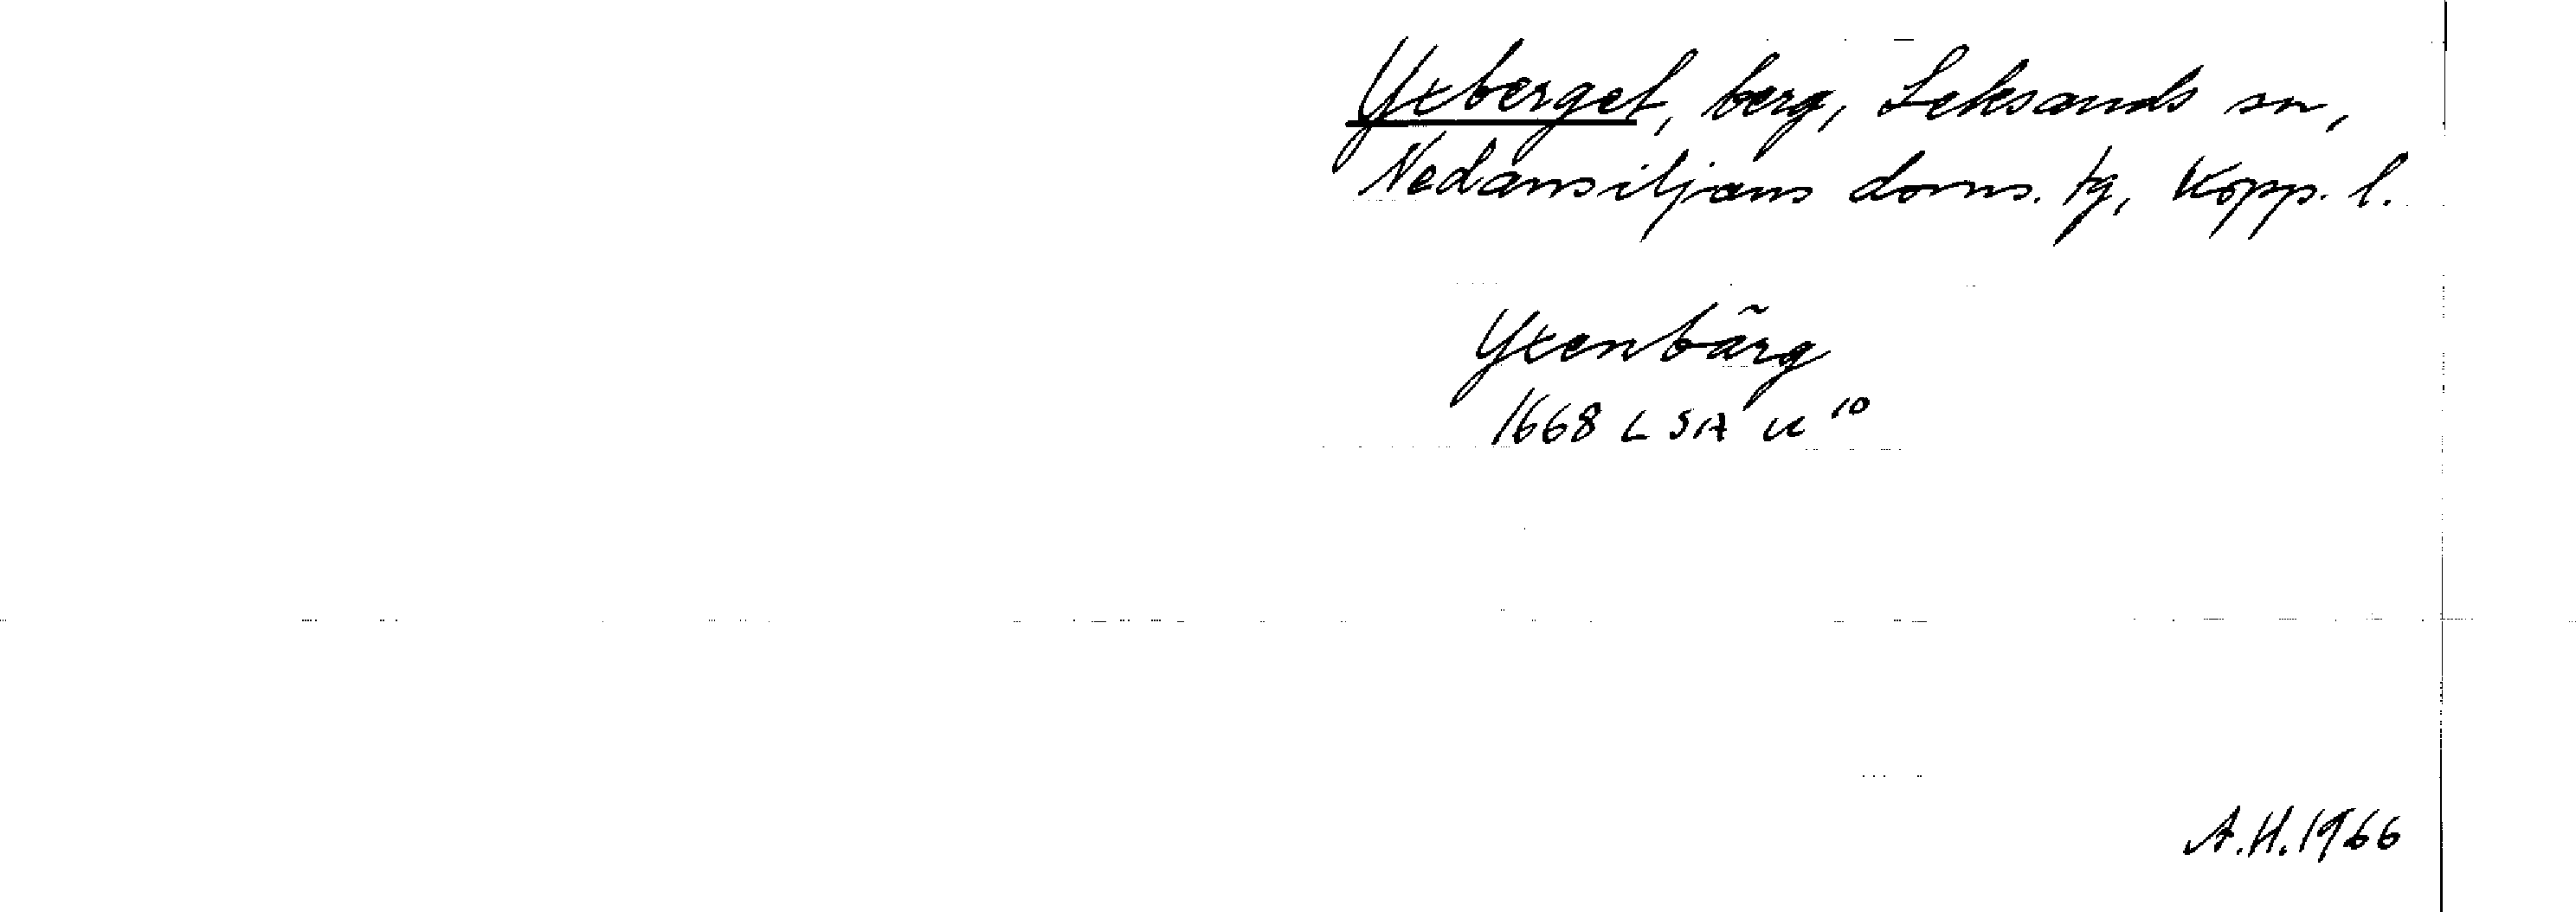 Yxberget, berg, Leksands sn,
Nedansiljans doms. tg, Kopp. l.
Yxenbärg
1668 LSA U 10
A.H. 1966